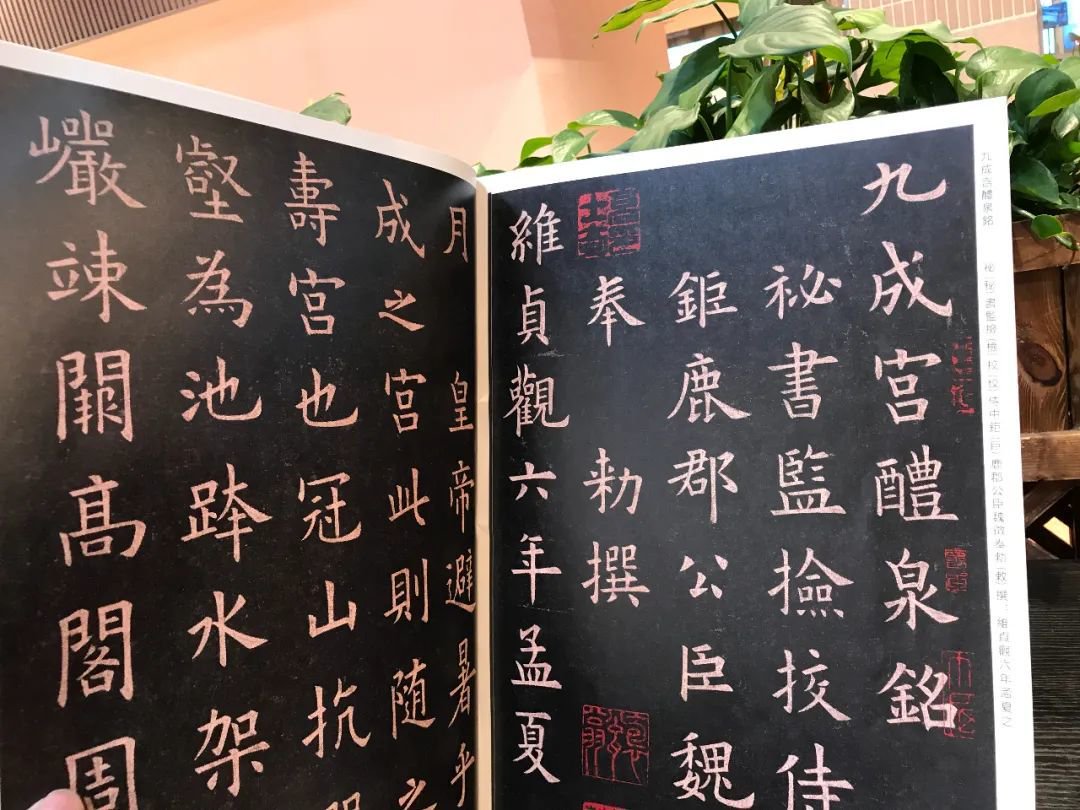 九成宮醴泉銘
祕(秘)書監撿(檢)挍(校)侍中鉅(巨)鹿郡公臣魏徵奉勑(敕)撰。維貞觀六年孟夏之
九成宮醴泉銘
祕書監撿挍侍
鉅鹿郡公臣魏
奉 勑撰
維貞觀六年孟夏
月 皇帝避暑乎
成之宮此則隨之
壽宮也冠山抗
壑為池跨水架
巖竦闕高閣周